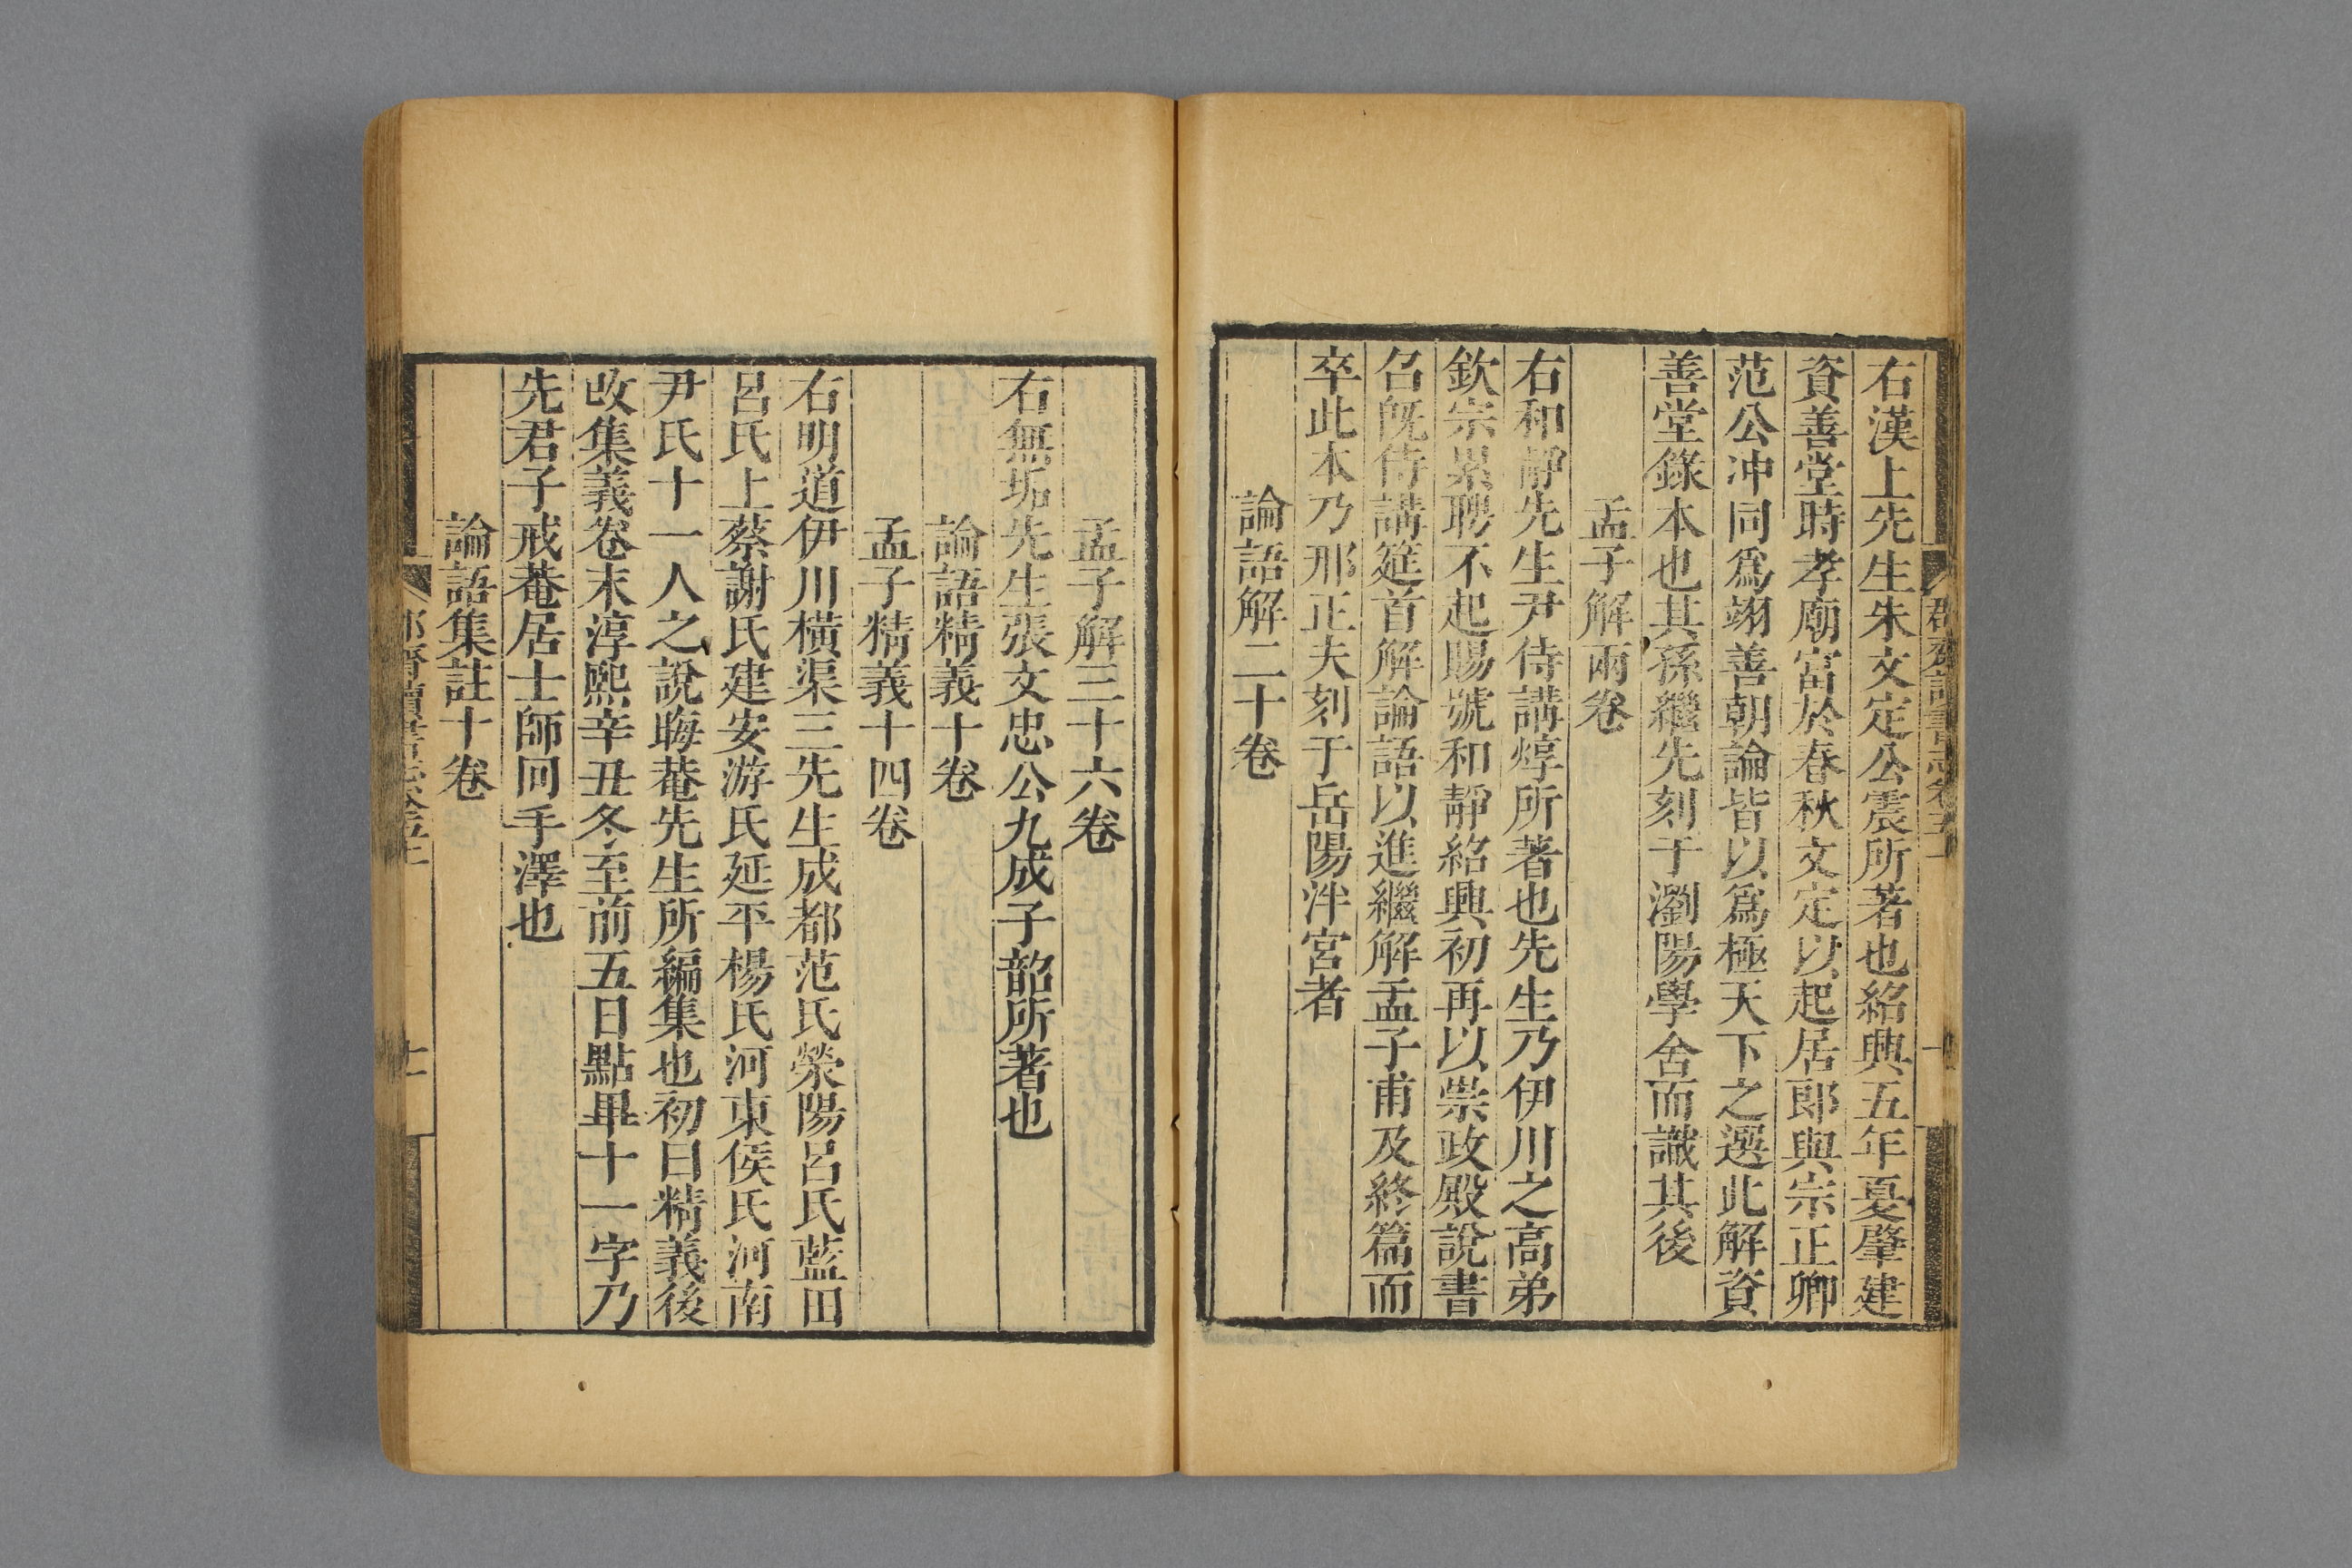 右漢上先生朱文定公震所著也紹興五年夏肇建
資善堂時孝廟富於春秋文定以起居郎與宗正卿
范公冲同爲翊善朝論皆以爲極天下之選此解資
善堂錄本也其孫繼先刻于瀏陽學舍而識其後
孟子解兩卷
右和靜先生尹侍講焞所著也先生乃伊川之高弟
欽宗累聘不起賜號和靜紹興初再以崇政殿說書
召旣侍講筵首解論語以進繼解孟子甫及終篇而
卒此本乃邢正夫刻于岳陽泮宮者
論語解二十卷
孟子解三十六卷
右無垢先生張文忠公九成子韶所著也
論語精義十卷
孟子精義十四卷
右明道伊川橫渠三先生成都范氏滎陽呂氏藍田
呂氏上蔡謝氏建安游氏延平楊氏河東侯氏河南
尹氏十一人之說晦菴先生所編集也初曰精義後
改集義卷末淳熙辛丑冬至前五日點畢十一字乃
先君子戒菴居士師回手澤也
論語集註十卷